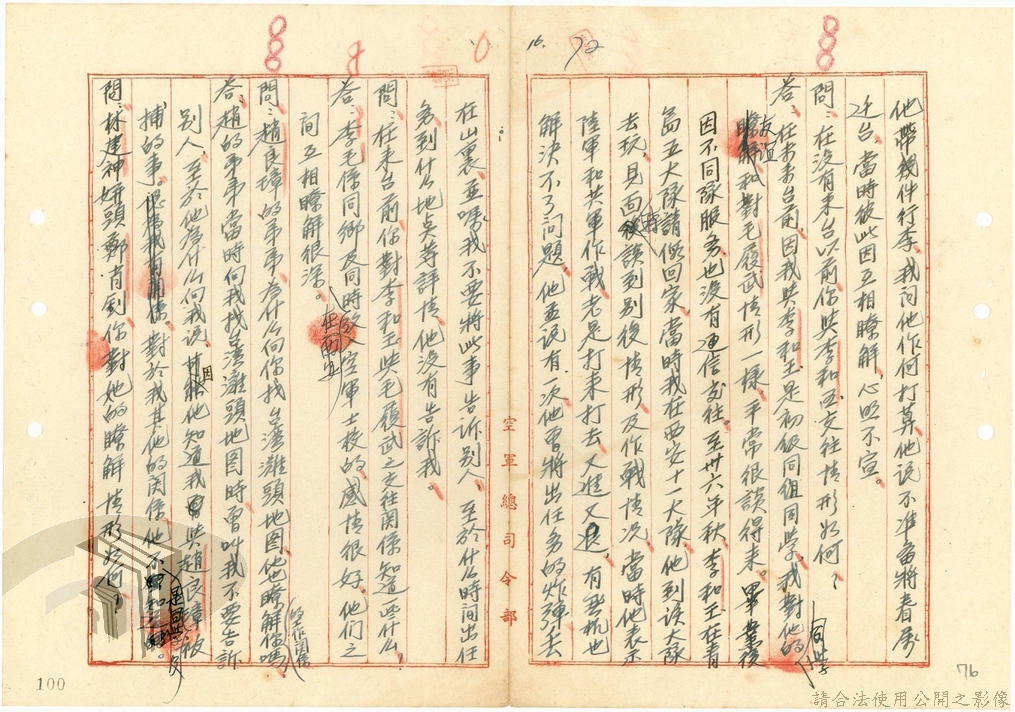 他帶幾件行李、我问他作何打算、他说不准备將眷属
迁台、當時彼此因互相瞭解、心照不宣。
問：在没有来台以前你與李和玉交往情形如何？
答：在未来台前、因我與李和玉是初級同組同學、我對他的
友谊和對毛履武情形一樣、平常很談得来。畢業後
因不同隊服务、也没有通信交往。至卅六年秋、李和玉在青
島五大隊請假回家、當時我在西安十一大隊、他到该大隊
去玩、見面時談到别後情形及作戰情况、當時他表示
陸軍和共軍作戰、老是打来打去、又進又退、有飛机也
解决不了问題、他並说有一次他曾將出任务的炸弹丢
在山裏、並嘱我不要將此事告訴别人、至於什么時间出任
务、到什么地点等詳情、他没有告訴我。
問：在来台前你對李和玉與毛履武之交往関係知道些什么？
答：李毛係同鄉及同時攷入空軍士校的、感情很好、他们之
间互相瞭解很深。
問：趙良璋的弟弟為什么向你找台湾灘頭地图、他也瞭解你的工作関係嗎？
答：趙的弟弟當時向我找台湾灘頭地图時、曾叫我不要告訴
别人、至於他為什么向我说、因他知道我與趙良璋被
捕的事。對於我其他的関係、他不
問：林建神姘頭鄭青釗、你對她的瞭解情形如何？
空軍總司令部
16.
72
76
100
請合法使用公開之影像